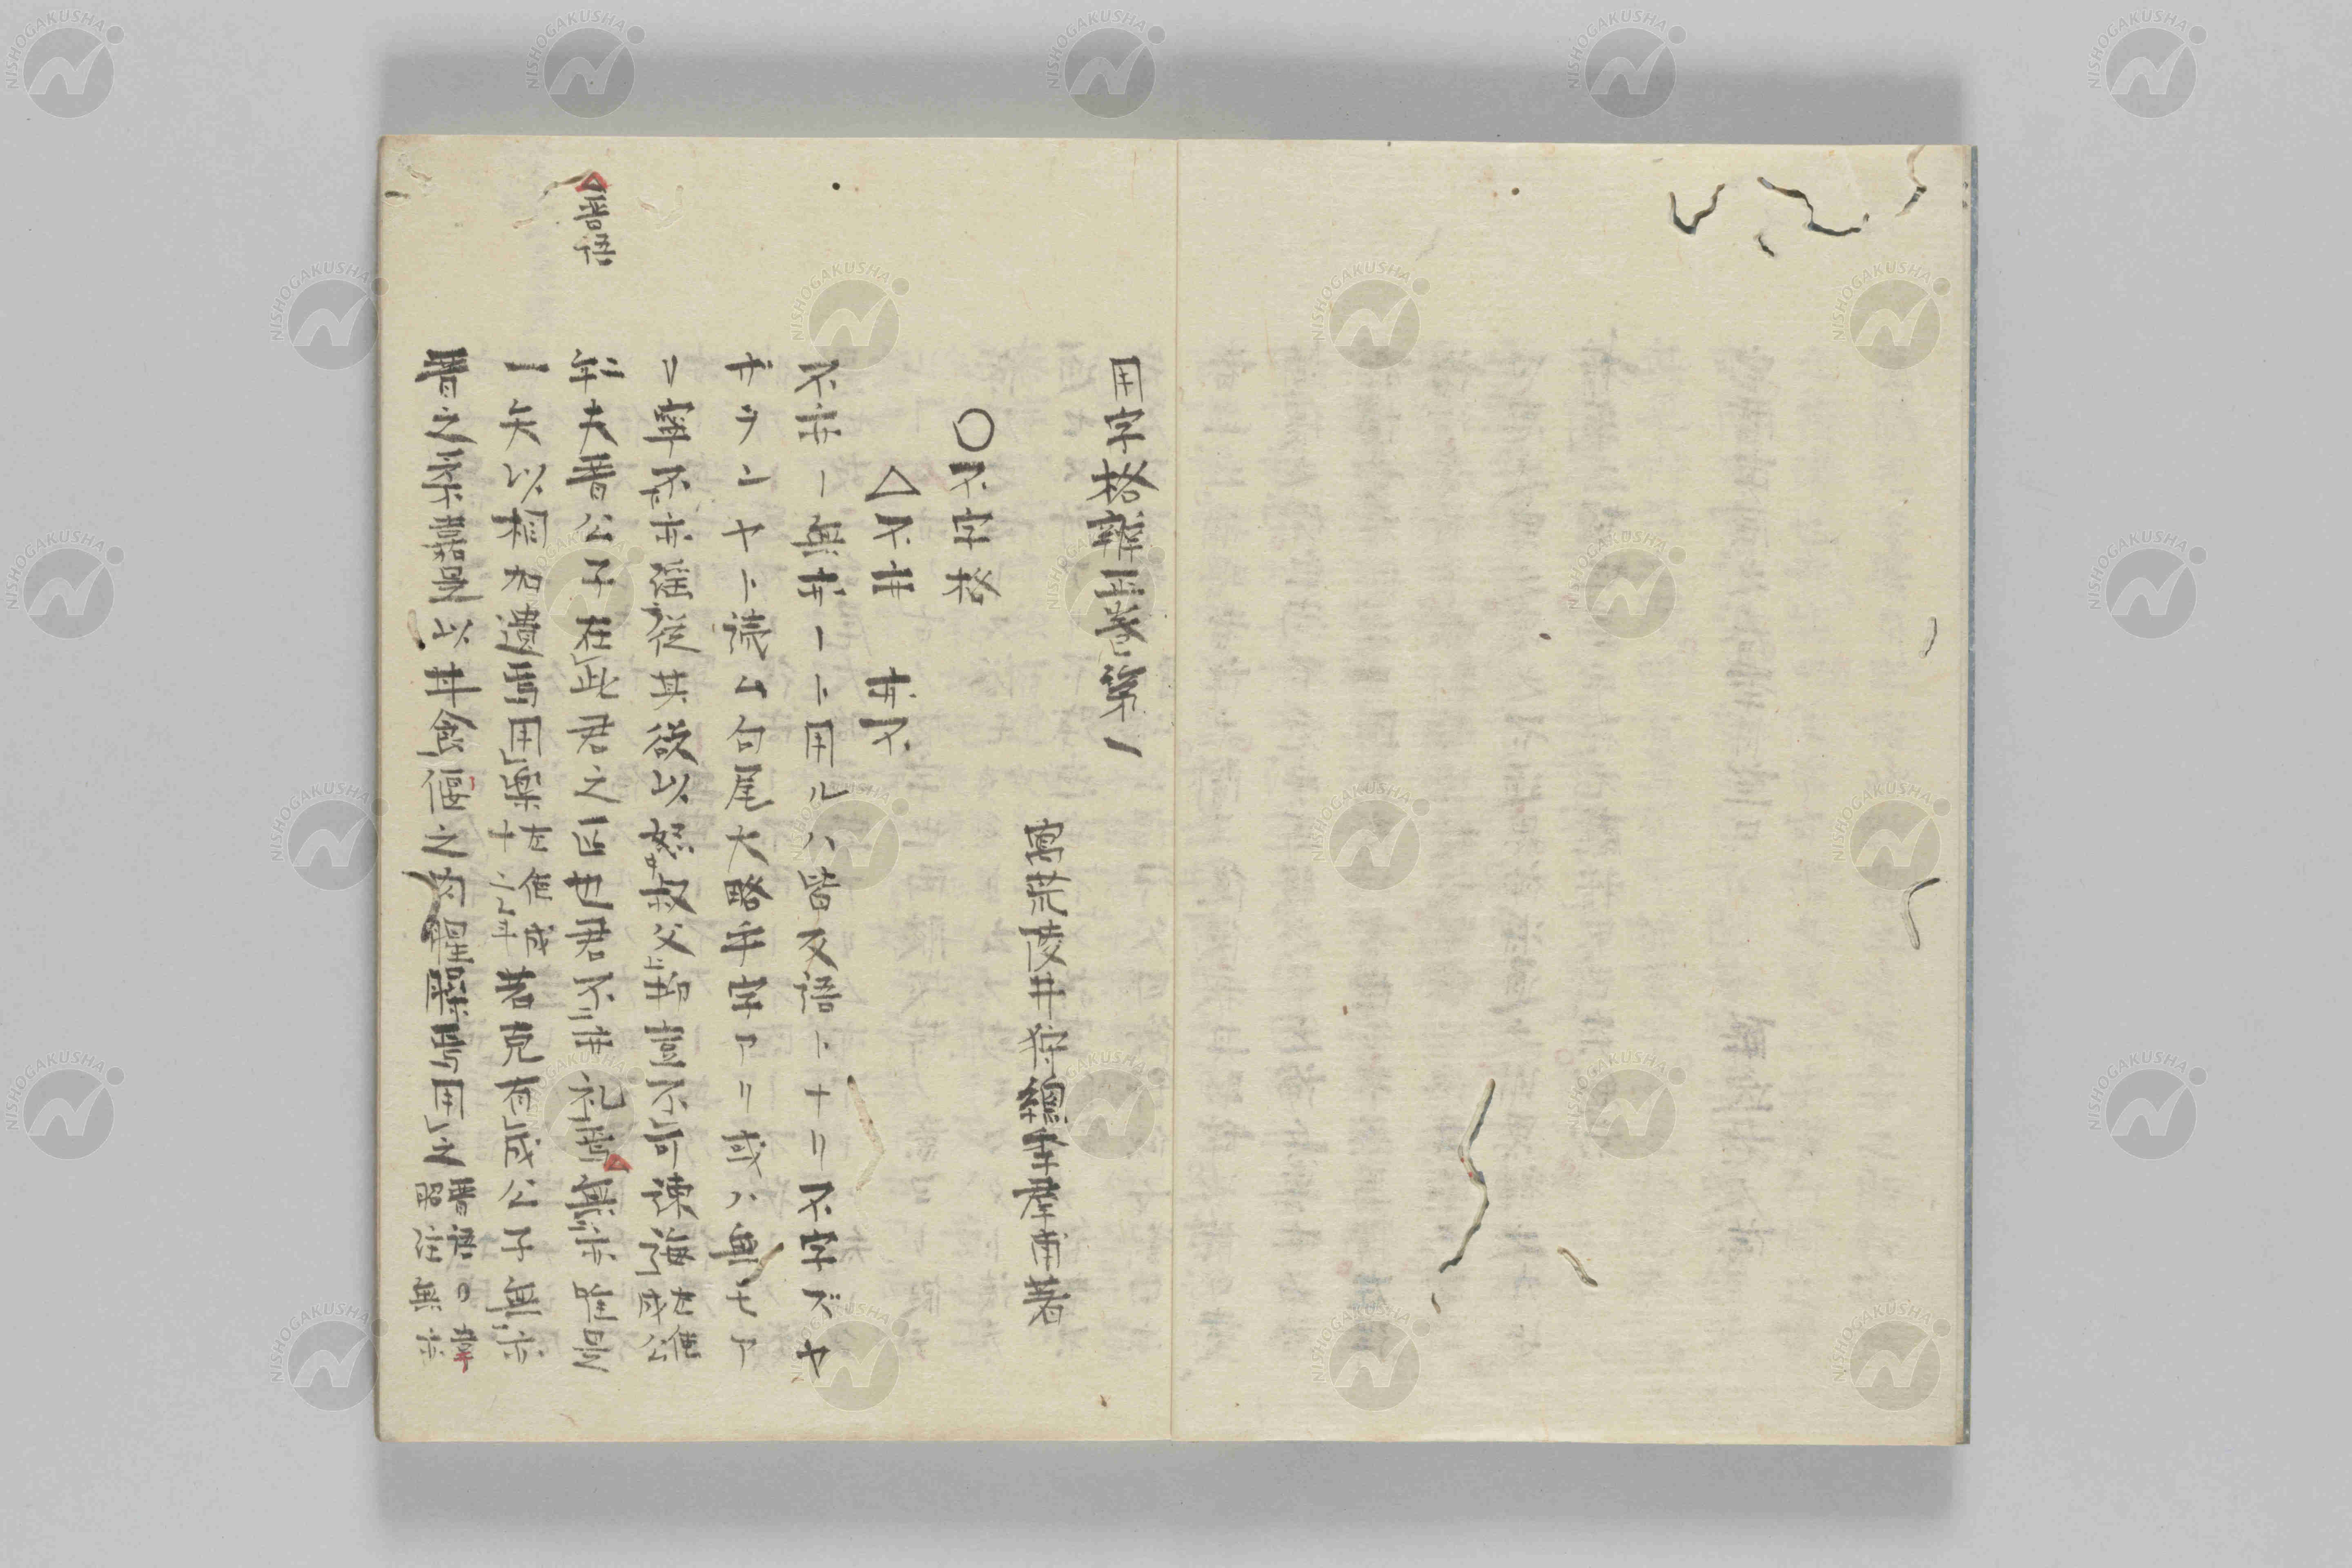 用字格辯正巻第一
著
〇不字格
△不亦　亦不
不亦ー無亦ートト用ルハ皆反語トナリ不字ズヤ
ザランヤト読ム句尾大略乎字アリ或ハ無モア
リ寧不亦淫従其欲以怒叔父抑豈不可諫誨左傳成公
二年夫晋公子在此君之匹也君不亦礼焉晋語無亦唯是
一矢以相加遺焉用楽左傳成十二年若克有成公子無亦
晋之柔嘉是以甘食偃之肉腥臊焉用之晋語〇韋昭注無亦
晋語
NISHOGAKUSHA